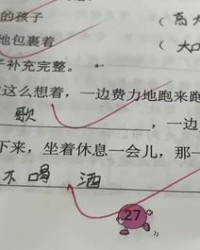 的孩子 （高大
地包裹着 （大口
子补充完整。
这么想着，一边费力地跑来跑
歌 ，一边
下来，坐着休息一会儿，那一
不喝酒
27